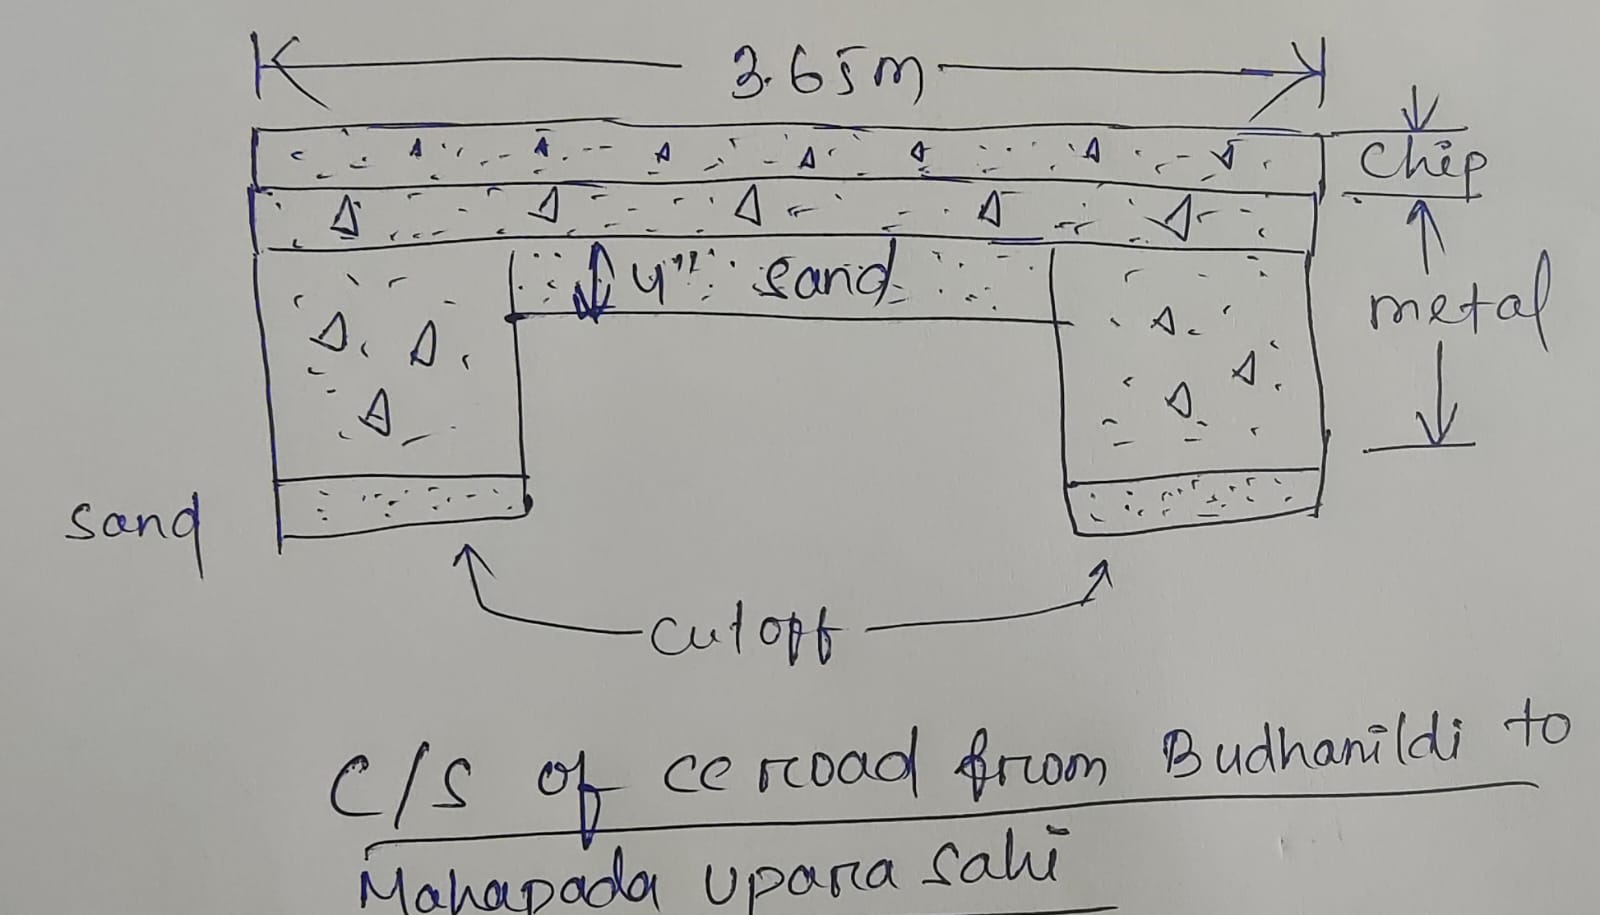 3.65m
Chip
4" sand
metal
sand
cutoff
C/S of cc road from Budhanildi to
Mahapada Upara Sahi